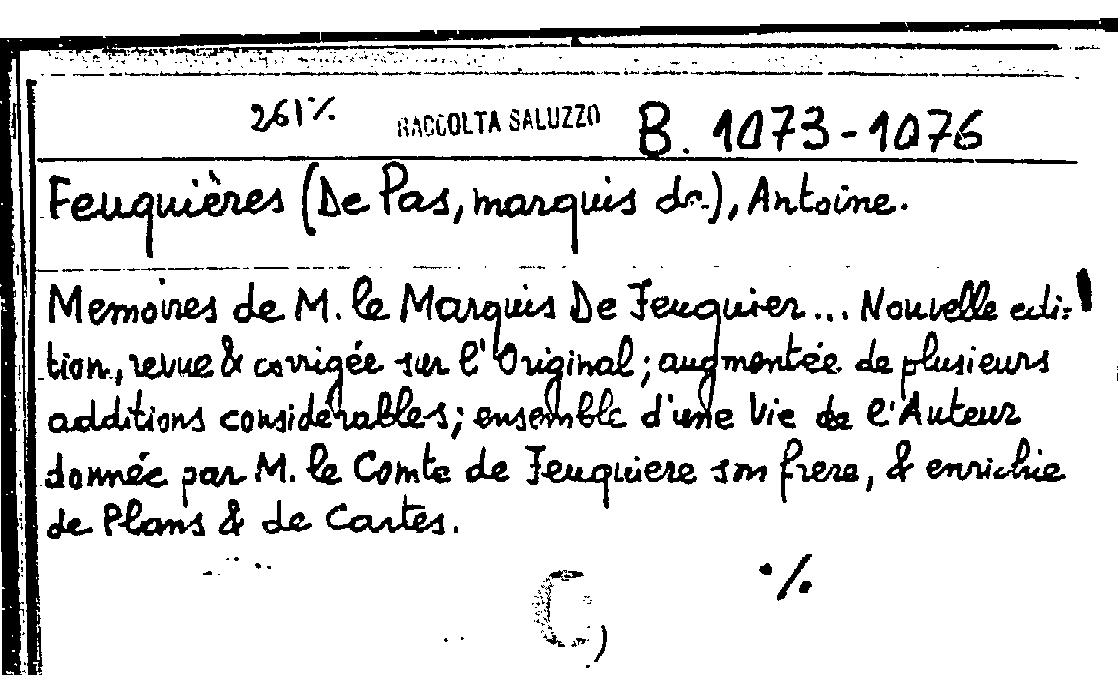 261 ./. RACCOLTA SALUZZO B. 1073-1076
Feuquières (De Pas, marquis de), Antoine.
Memoires de M. le Marquis De Feuquier... Nouvelle edi-
tion, revue & corrigée sur l'Original; augmentée de plusieurs
additions considérables; ensemble d'une Vie de l'Auteur
donnée par M. le Comte de Feuquiere son frere, & enrichie
de Plans & de Cartes.
./.
C